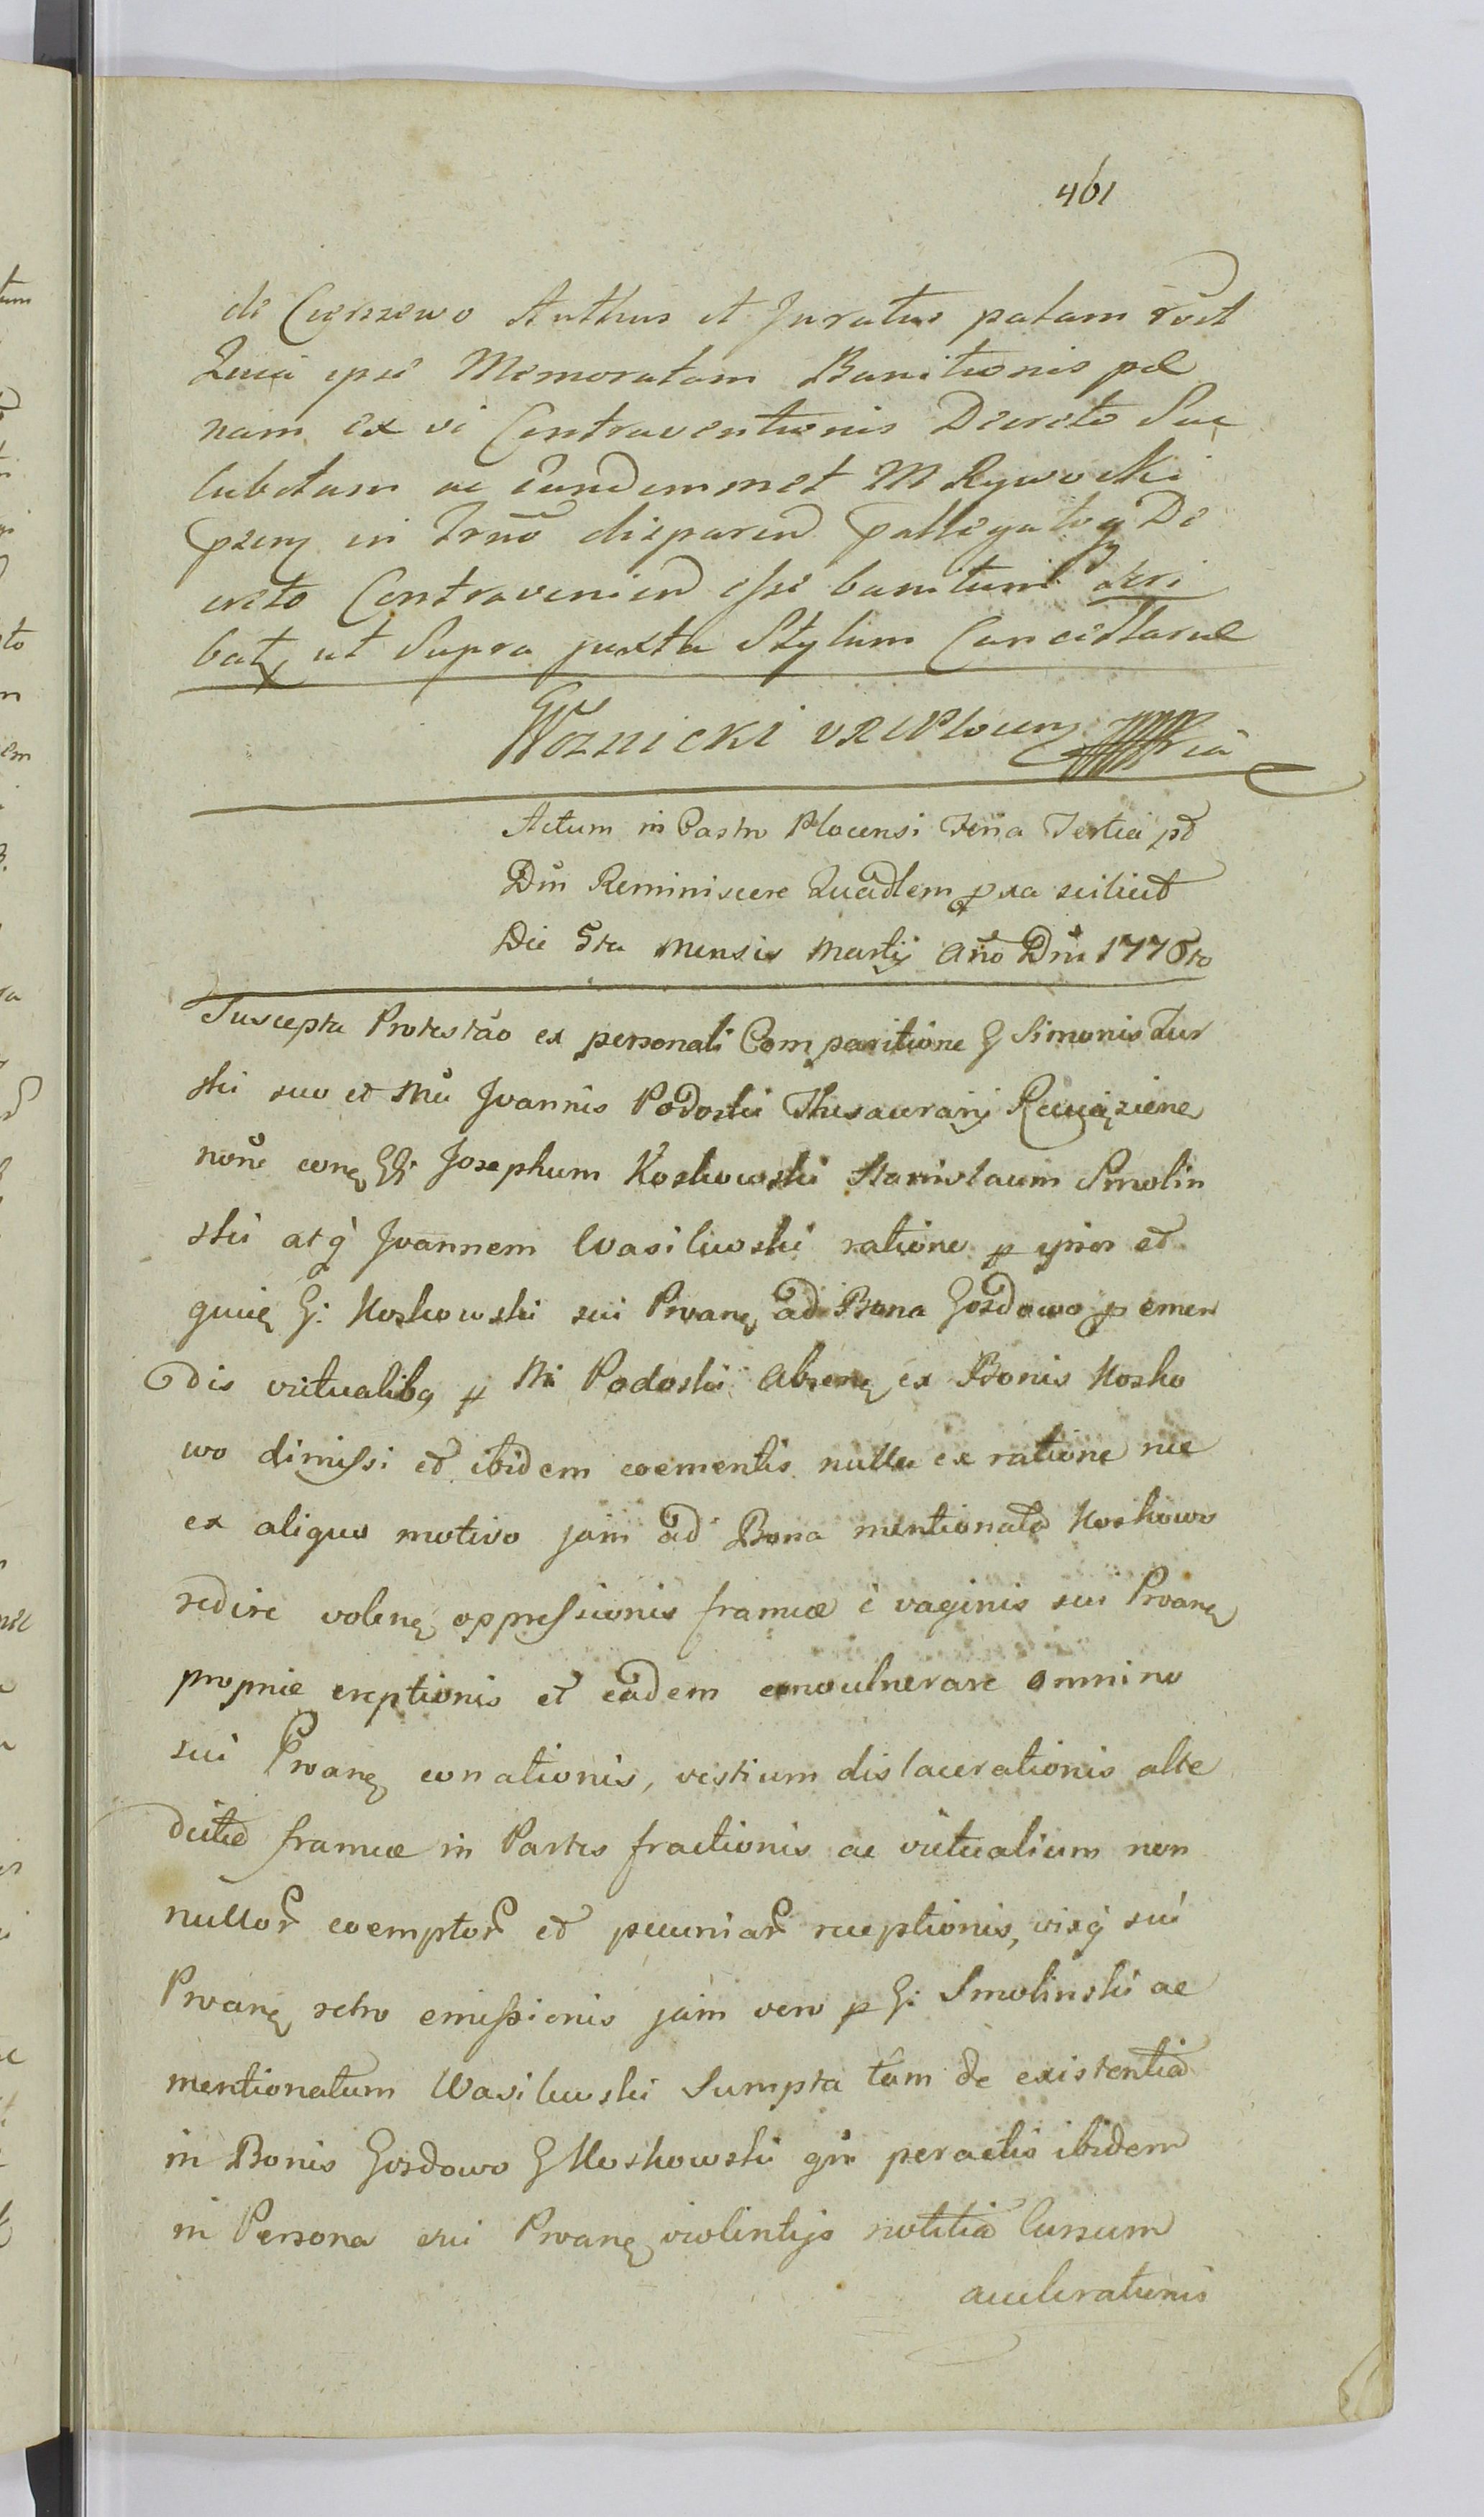 461
de Cierszewo Authus et Juratus palam rõit
Quia ipse Memoratam Banitionis pæ
nam ex vi Contraventionis Decreto Suc
lubitam ac eundemmet M Rywocki
pñm in Trnõ disparen pallegatoq De
creto Contravenien esse banitum scri
bat, ut Supra juxta Stylum Cancellariæ
Woznicki
Actum in Castro Plocensi Feria Tertia pt
Dm̃ Reminiscere Quadlem pxa scilicet
Die 5ta mensis Martij Año Dni 1776to
Suscepta Protestão ex personali Comparitione G Simonis Tur
ski suo et Mci Joannis Podoski Thesaurarij Rożaziene
noñe conq GG: Josephum Koskowski Stanislaum Smolin
ski atq Joannem Wasilewski ratione p ipsos et
quiq G: Koskowski sui Proanq ad Bona Gozdowo p emen
dis victualibq p M Podoski absenq ex Bonis Kosko
wo dimissi et ibidem coementis nulla ex ratione nec
ex aliquo motivo jam ad Bona mentionata Koskowo
redire volenq oppressionis frameæ e vaginis sui Proanq
propriæ ereptionis et eadem convulnerare omnino
sui Proanq conationis, vestium dislacerationis alte
dictæ frameæ in Partes fractionis ac victualium non
nullor coemptor et pecuniar receptionis, visq sui
Proanq retro emissionis jam vero p G: Smolinski ac
mentionatum Wasilewski Sumpta tam de existentia
in Bonis Gozdowo G Koskowski qm peractis ibidem
in Persona sui Proanq violentijs notitia cursum
accelerationis